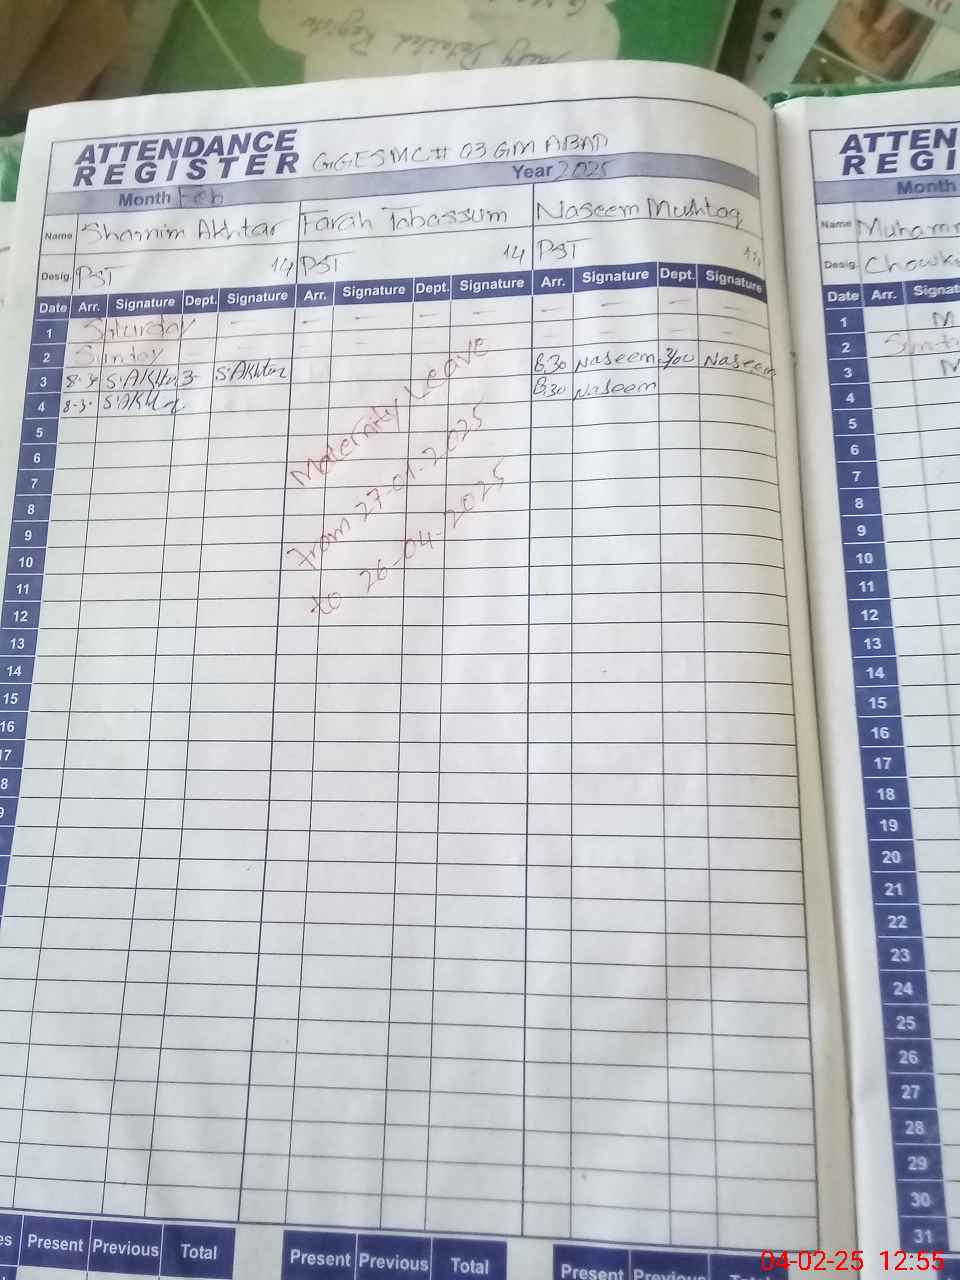 Daily Detailed Register
ATTENDANCE REGISTER GGESMC# 03 GM ABAD
Month Feb Year 2025
Name Shamim Akhtar Farah Tabassum Naseem Mushtaq
Desig. PST 14 PST 14 PST
Date Arr. Signature Dept. Signature Arr. Signature Dept. Signature Arr. Signature Dept. Signature
1 Saturday — — — — — — — —
2 Sunday
3 8-3 S.AKhtar 3- S.AKhtar 8.30 Naseem 3/00 Naseem
4 8-3- S.AKhtar 8.30 Naseem
Maternity Leave
from 27-01-2025
to 26-04-2025
5
6
7
8
9
10
11
12
13
14
15
16
17
8
9
Present Previous Total Present Previous Total Present Previous
ATTEN
REGI
Month
Name Muhamm
Desig. Chowk
Date Arr. Signat
1 M
2 Sunda
3 M
4
5
6
7
8
9
10
11
12
13
14
15
16
17
18
19
20
21
22
23
24
25
26
27
28
29
30
31
04-02-25 12:55